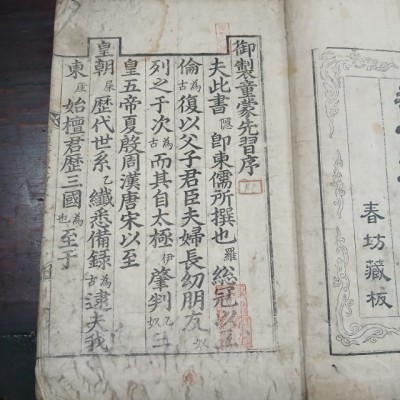 春坊藏板
御製童蒙先習序
夫此書 隱 卽東儒所撰也 羅 総冠以五
倫 為古 復以父子君臣夫婦長幼朋友 奴
列之于次 為古 而其自太極 伊 肇判 乙奴 三
皇五帝夏殷周漢唐宋以至
皇朝 厓 歴代世系 乙 纖悉備録 為古 逮夫我
東 厓 始檀君歷三國 為也 至于